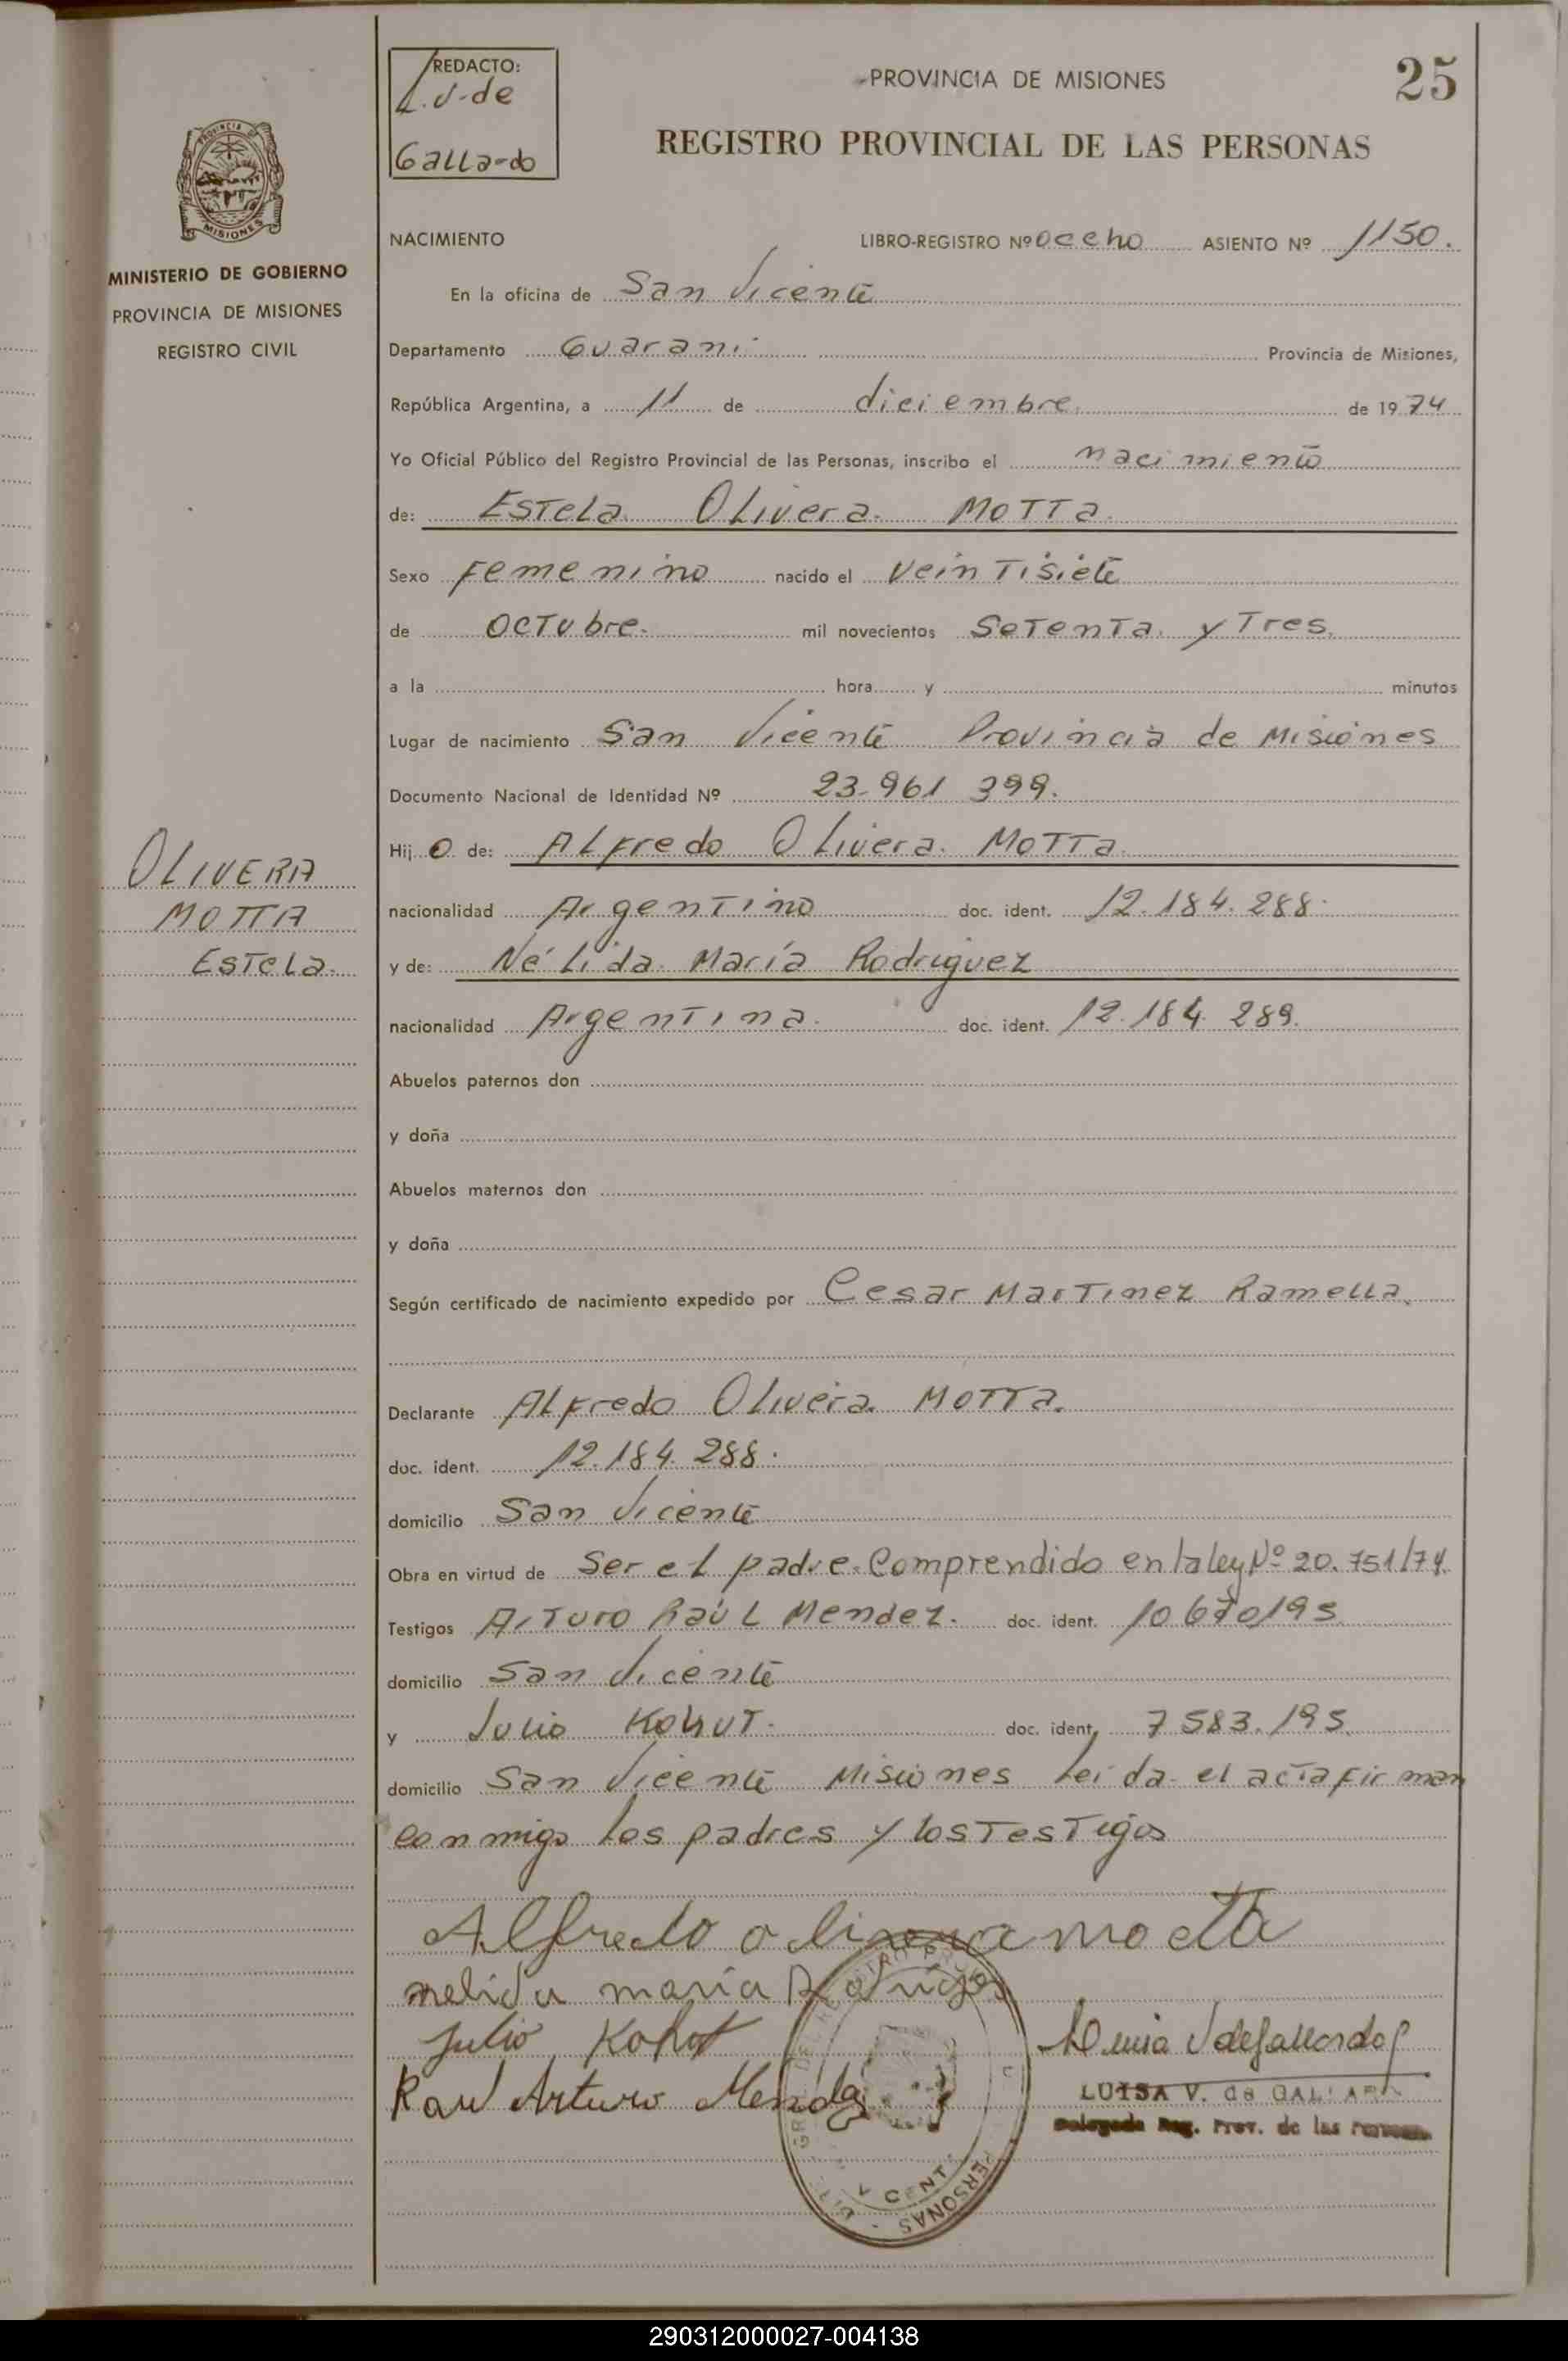 25
REDACTO:
L.V. de
Gallardo
PROVINCIA DE MISIONES
REGISTRO PROVINCIAL DE LAS PERSONAS
PROVINCIA DE
MISIONES
MINISTERIO DE GOBIERNO
PROVINCIA DE MISIONES
REGISTRO CIVIL
NACIMIENTO LIBRO-REGISTRO Nº Oceho ASIENTO Nº 1150.
En la oficina de San Vicente
Departamento Guarani Provincia de Misiones,
República Argentina, a 11 de diciembre de 1974
Yo Oficial Público del Registro Provincial de las Personas, inscribo el nacimiento
de: Estela Olivera Motta
Sexo Femenino nacido el Veintisiete
de Octubre. mil novecientos Setenta y Tres.
a la hora y minutos
Lugar de nacimiento San Vicente Provincia de Misiones
Documento Nacional de Identidad Nº 23.961 399.
Hij o de: Alfredo Olivera Motta
nacionalidad Argentino doc. ident. 12.184.288.
y de: Nélida María Rodriguez
nacionalidad Argentina. doc. ident. 12.184.289.
Abuelos paternos don
y doña
Abuelos maternos don
y doña
Según certificado de nacimiento expedido por Cesar Martinez Ramella.
Declarante Alfredo Olivera Motta.
doc. ident. 12.184.288.
domicilio San Vicente
Obra en virtud de Ser el padre. Comprendido en la ley Nº 20.751/74.
Testigos Arturo Raúl Mendez. doc. ident. 10.670195
domicilio San Vicente
y Julio Kohut. doc. ident, 7583.195.
domicilio San Vicente Misiones Leida el acta firman
conmigo los padres y los Testigos
OLIVERA
MOTTA
Estela.
Alfredo olivera motta
nelida maria Rodrigez
Julio Kohut
Raul Arturo Mendez
Luisa V de Gallardo
LUISA V. de GALLARDO
Delegada Reg. Prov. de las Personas
PERSONAS
290312000027-004138